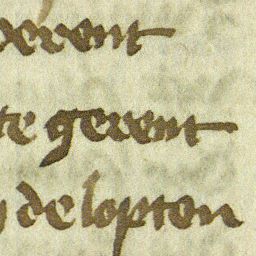 erent
te gerent
de lopton